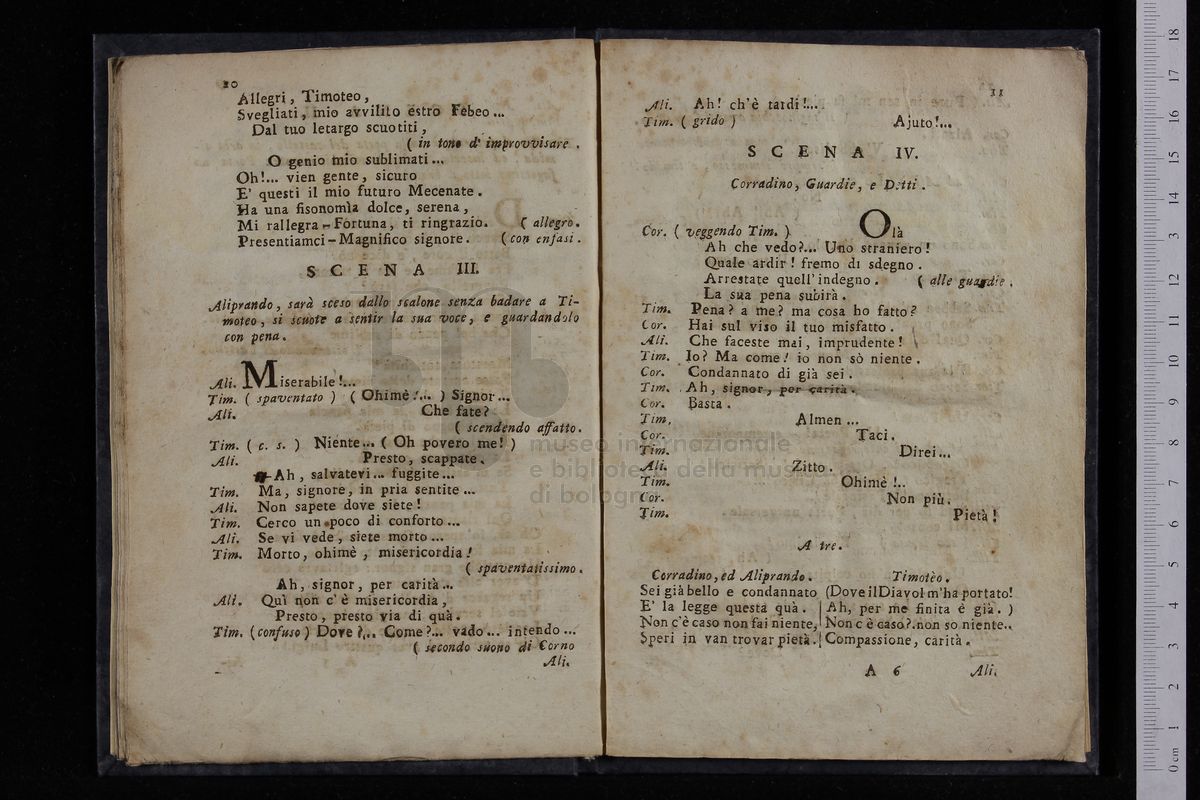 10
Allegri, Timoteo,
Svegliati, mio avvilito estro Febeo...
Dal tuo letargo scuotiti,
( in tono d' improvvisare .
O genio mio sublimati...
Oh!... vien gente, sicuro
E' questi il mio futuro Mecenate.
Ha una fisonomìa dolce, serena,
Mi rallegra - Fortuna, ti ringrazio. ( allegro.
Presentiamci - Magnifico signore. ( con enfasi.
SCENA III.
Aliprando, sarà sceso dallo scalone senza badare a Ti-
moteo, si scuote a sentir la sua voce, e guardandolo
con pena.
Ali. Miserabile!...
Tim. ( spaventato ) ( Ohimè!... ) Signor...
Ali. Che fate?
( scendendo affatto.
Tim. ( c. s. ) Niente... ( Oh povero me! )
Ali. Presto, scappate.
Ah, salvatevi... fuggite...
Tim. Ma, signore, in pria sentite...
Ali. Non sapete dove siete!
Tim. Cerco un poco di conforto...
Ali. Se vi vede, siete morto...
Tim. Morto, ohimè, misericordia!
( spaventatissimo.
Ah, signor, per carità...
Ali. Quì non c'è misericordia,
Presto, presto via di quà.
Tim. (confuso) Dove?... Come?... vado... intendo...
( secondo suono di Corno
Ali.
11
Ali. Ah! ch'è tardi!....
Tim. ( grido ) Ajuto!...
SCENA IV.
Corradino, Guardie, e Detti.
Cor. ( veggendo Tim. ) Olà
Ah che vedo?... Uno straniero!
Quale ardir! fremo di sdegno.
Arrestate quell'indegno. ( alle guardie.
La sua pena subirà.
Tim. Pena? a me? ma cosa ho fatto?
Cor. Hai sul viso il tuo misfatto.
Ali. Che faceste mai, imprudente!
Tim. Io? Ma come! io non sò niente.
Cor. Condannato di già sei.
Tim. Ah, signor, per carità.
Cor. Basta.
Tim. Almen...
Cor. Taci.
Tim. Direi...
Ali. Zitto.
Tim. Ohimè!..
Cor. Non più.
Tim. Pietà!
A tre.
Corradino, ed Aliprando. Timotèo.
Sei già bello e condannato (Dove il Diavol m'ha portato!
E' la legge questa quà. Ah, per me finita è già. )
Non c'è caso non fai niente, Non c è caso?.non so niente..
Speri in van trovar pietà. Compassione, carità.
A 6 Ali.
museo internazionale
e biblioteca della musica
di bologna